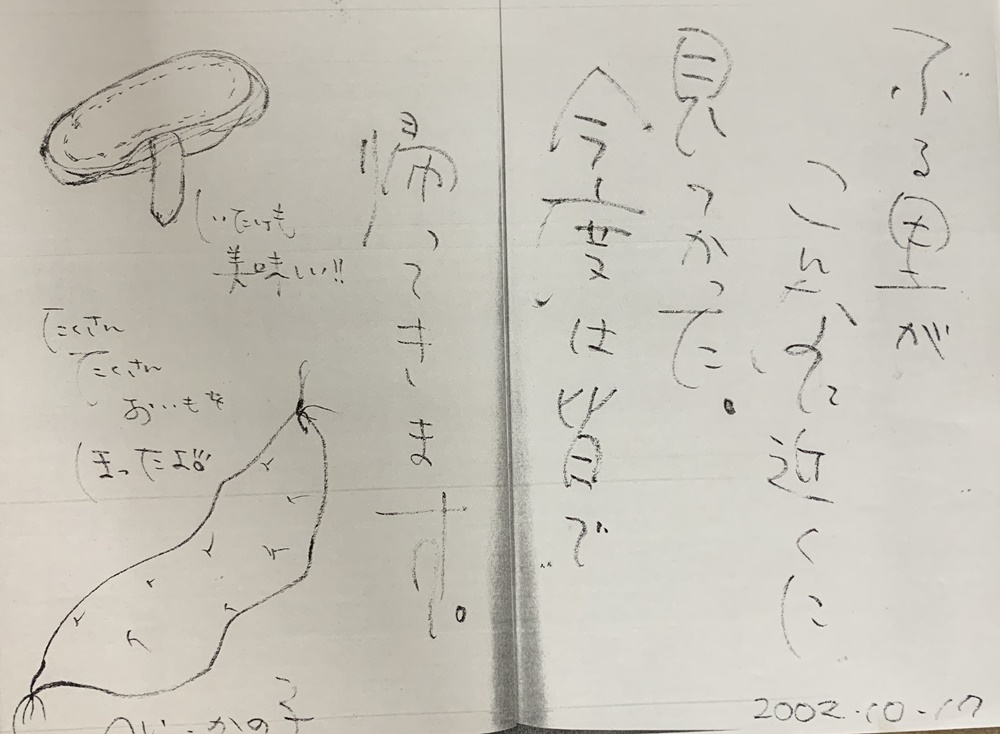 ふる里が
こんな近くに
見つかった。
今度は皆で
帰ってきます。
しいたけも
美味しい!!
たくさん
たくさん
おいもを
ほったよ
かの子
2002.10.17